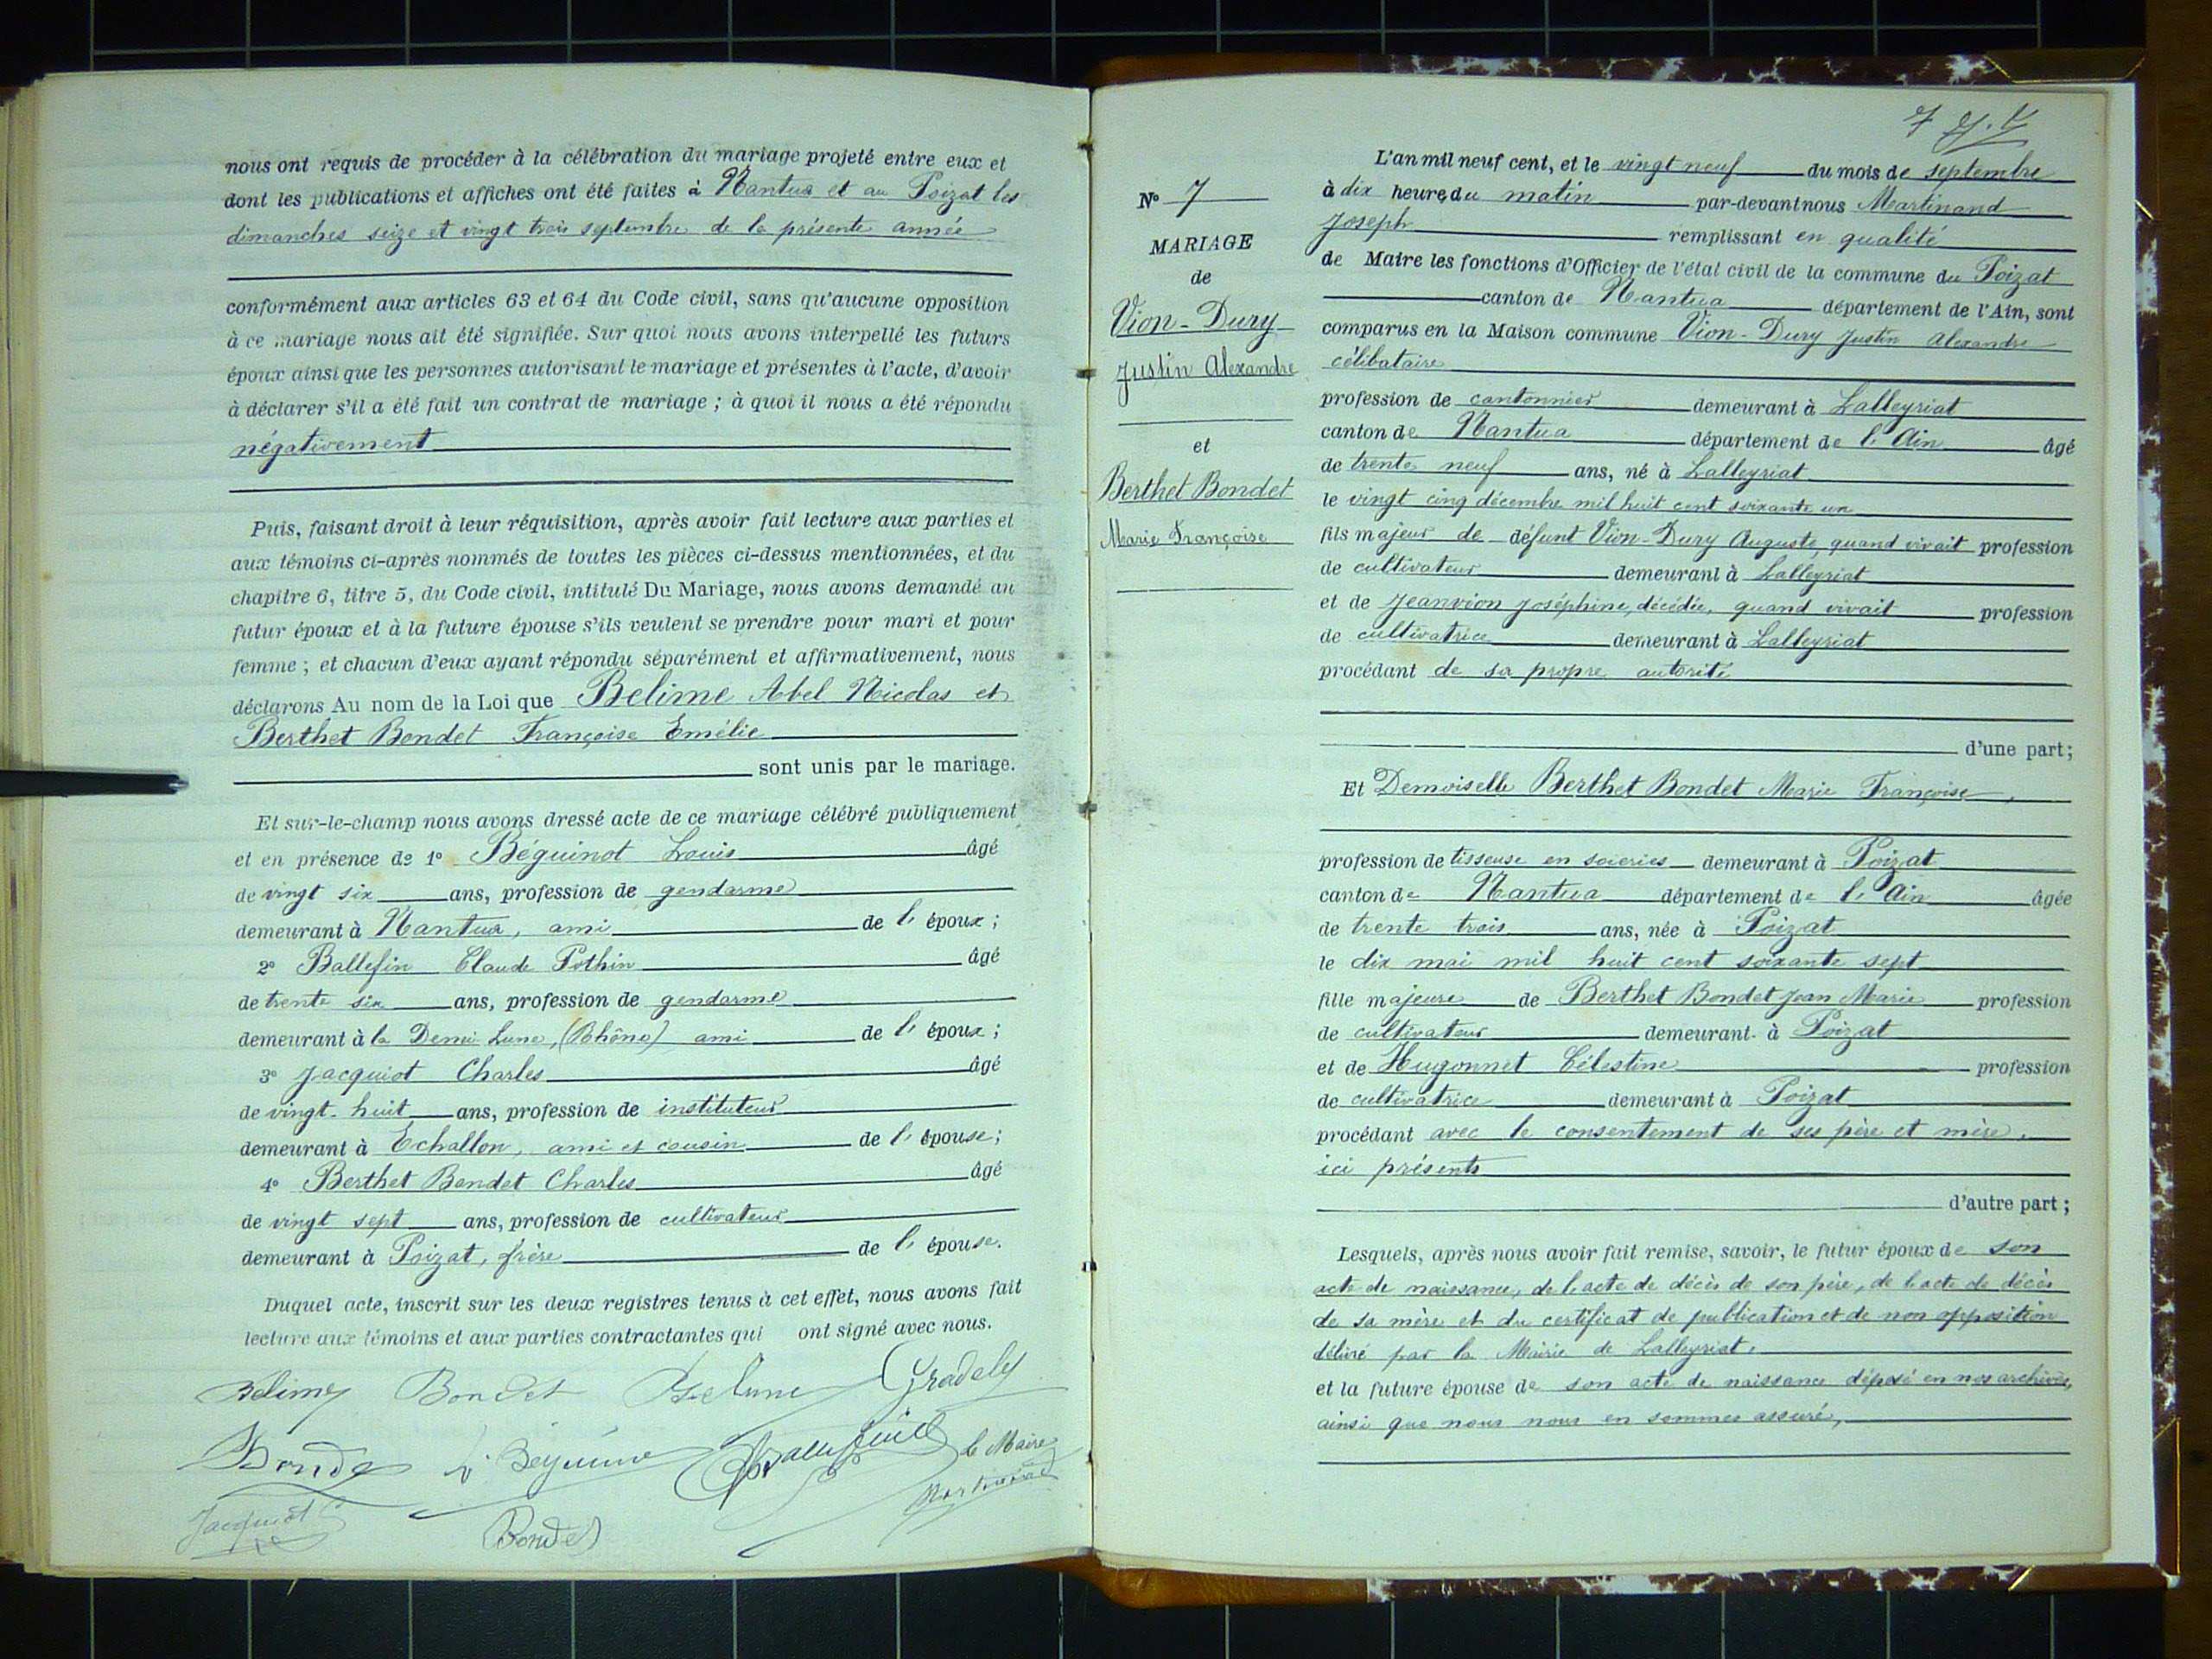 nous ont requis de procéder à la célébration du mariage projeté entre eux et
dont les publications et affiches ont été faites à Nantua et au Poizat les
dimanches seize et vingt trois septembre de la présente année
conformément aux articles 63 et 64 du Code civil, sans qu'aucune opposition
à ce mariage nous ait été signifiée. Sur quoi nous avons interpellé les futurs
époux ainsi que les personnes autorisant le mariage et présentes à l'acte, d'avoir
à déclarer s'il a été fait un contrat de mariage ; à quoi il nous a été répondu
négativement
Puis, faisant droit à leur réquisition, après avoir fait lecture aux parties et
aux témoins ci-après nommés de toutes les pièces ci-dessus mentionnées, et du
chapitre 6, titre 5, du Code civil, intitulé Du Mariage, nous avons demandé au
futur époux et à la future épouse s'ils veulent se prendre pour mari et pour
femme ; et chacun d'eux ayant répondu séparément et affirmativement, nous
déclarons Au nom de la Loi que Belime Abel Nicolas et
Berthet Bondet Françoise Emélie
sont unis par le mariage.
Et sur-le-champ nous avons dressé acte de ce mariage célébré publiquement
et en présence de 1° Béguinot Louis âgé
de vingt six ans, profession de gendarme
demeurant à Nantua, ami de l' époux ;
2° Ballefin Claude Pothin âgé
de trente six ans, profession de gendarme
demeurant à la Demi Lune, (Rhône) ami de l' époux ;
3° Jacquiot Charles âgé
de vingt-huit ans, profession de instituteur
demeurant à Echallon, ami et cousin de l' épouse ;
4° Berthet Bondet Charles âgé
de vingt sept ans, profession de cultivateur
demeurant à Poizat, frère de l' épouse.
Duquel acte, inscrit sur les deux registres tenus à cet effet, nous avons fait
lecture aux témoins et aux parties contractantes qui ont signé avec nous.
Belime Bondet Belime Gradely
Bondet
le Maire
Jacquiot Bondet Martinand
7
N° 7
MARIAGE
de
Vion-Dury
Justin Alexandre
et
Berthet Bondet
Marie Françoise
L'an mil neuf cent, et le vingt neuf du mois de septembre
à dix heures du matin par-devant nous Martinand
Joseph remplissant en qualité
de Maire les fonctions d'Officier de l'état civil de la commune du Poizat
canton de Nantua département de l'Ain, sont
comparus en la Maison commune Vion-Dury Justin Alexandre
célibataire
profession de cantonnier demeurant à Lalleyriat
canton de Nantua département de l'Ain âgé
de trente neuf ans, né à Lalleyriat
le vingt cinq décembre mil huit cent soixante un
fils majeur de défunt Vion-Dury Auguste, quand vivait profession
de cultivateur demeurant à Lalleyriat
et de Jeanvion Joséphine, décédée, quand vivait profession
de cultivatrice demeurant à Lalleyriat
procédant de sa propre autorité
d'une part ;
Et Demoiselle Berthet Bondet Marie Françoise,
profession de tisseuse en soieries demeurant à Poizat
canton de Nantua département de l'Ain âgée
de trente trois ans, née à Poizat
le dix mai mil huit cent soixante sept
fille majeure de Berthet Bondet Jean Marie profession
de cultivateur demeurant à Poizat
et de Hugonnet Célestine profession
de cultivatrice demeurant à Poizat
procédant avec le consentement de ses père et mère,
ici présents
d'autre part ;
Lesquels, après nous avoir fait remise, savoir, le futur époux de son
acte de naissance, de l'acte de décès de son père, de l'acte de décès
de sa mère et du certificat de publication et de non opposition
délivré par la Mairie de Lalleyriat,
et la future épouse de son acte de naissance déposé en nos archives,
ainsi que nous nous en sommes assuré,